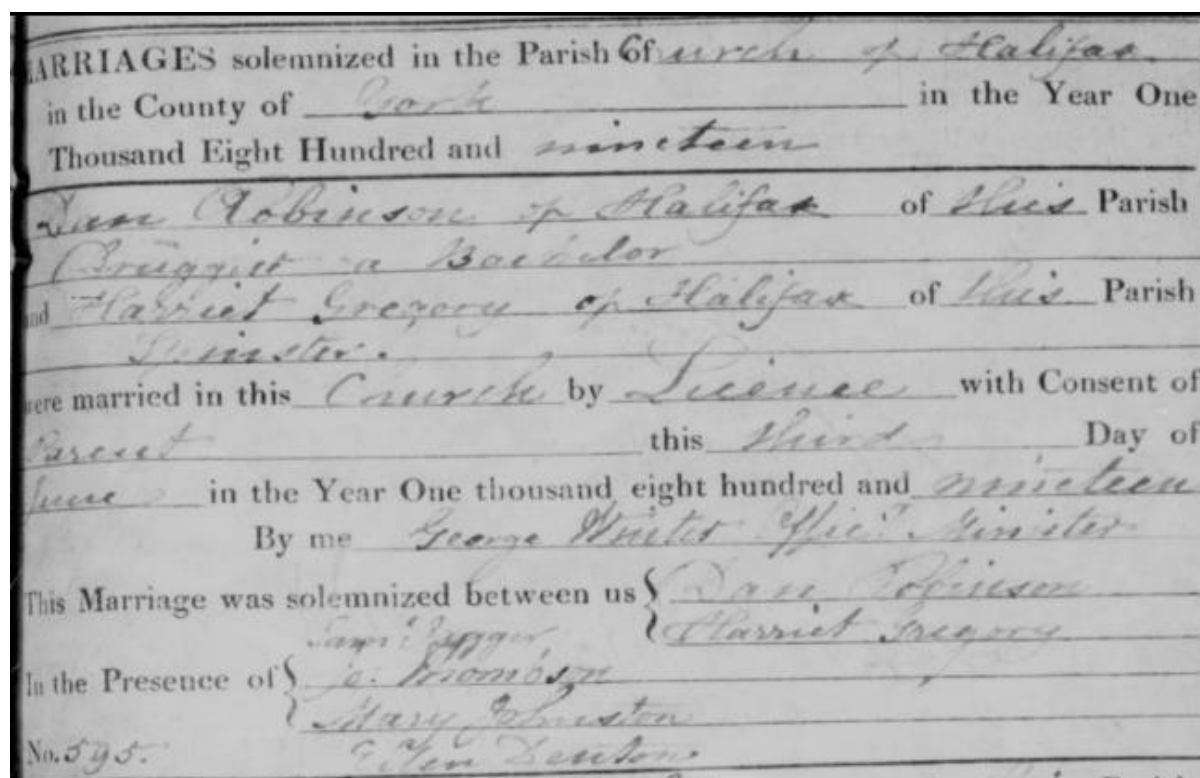 MARRIAGES solemnized in the Parish Church of Halifax
in the County of York in the Year One
Thousand Eight Hundred and nineteen
Dan Robinson of Halifax of this Parish
Druggist a Bachelor
and Harriet Gregory of Halifax of this Parish
Spinster.
were married in this Church by Licence with Consent of
Parent this third Day of
June in the Year One thousand eight hundred and nineteen
By me George Winter Offic.g Minister
This Marriage was solemnized between us { Dan Robinson
Harriet Gregory
Saml. Jagger
In the Presence of { Thompson
Mary Johnston
Denton
No. 595.